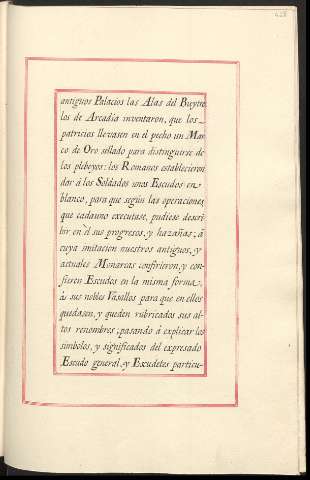 antiguos Palacios las Alas del Buytre
los de Arcadia inventaron, que los
patricios llevasen en el pecho un Mar-
co de Oro sellado para distinguirse de
los plebeyos: los Romanos establecieron
dar á los Soldados unos Escudos en
blanco, para que según las operaciones
que cadauno executase, pudiese descri-
bir en él sus progresos, y hazañas; á
cuya imitacion nuestros antiguos, y
actuales Monarcas confirieron, y con-
fieren Escudos en la misma forma,
á sus nobles Vasallos para que en ellos
quedasen, y queden rubricados sus al-
tos renombres; pasando á explicar los
simbolos, y significados del expresado
Escudo general, y Escudetes particu-